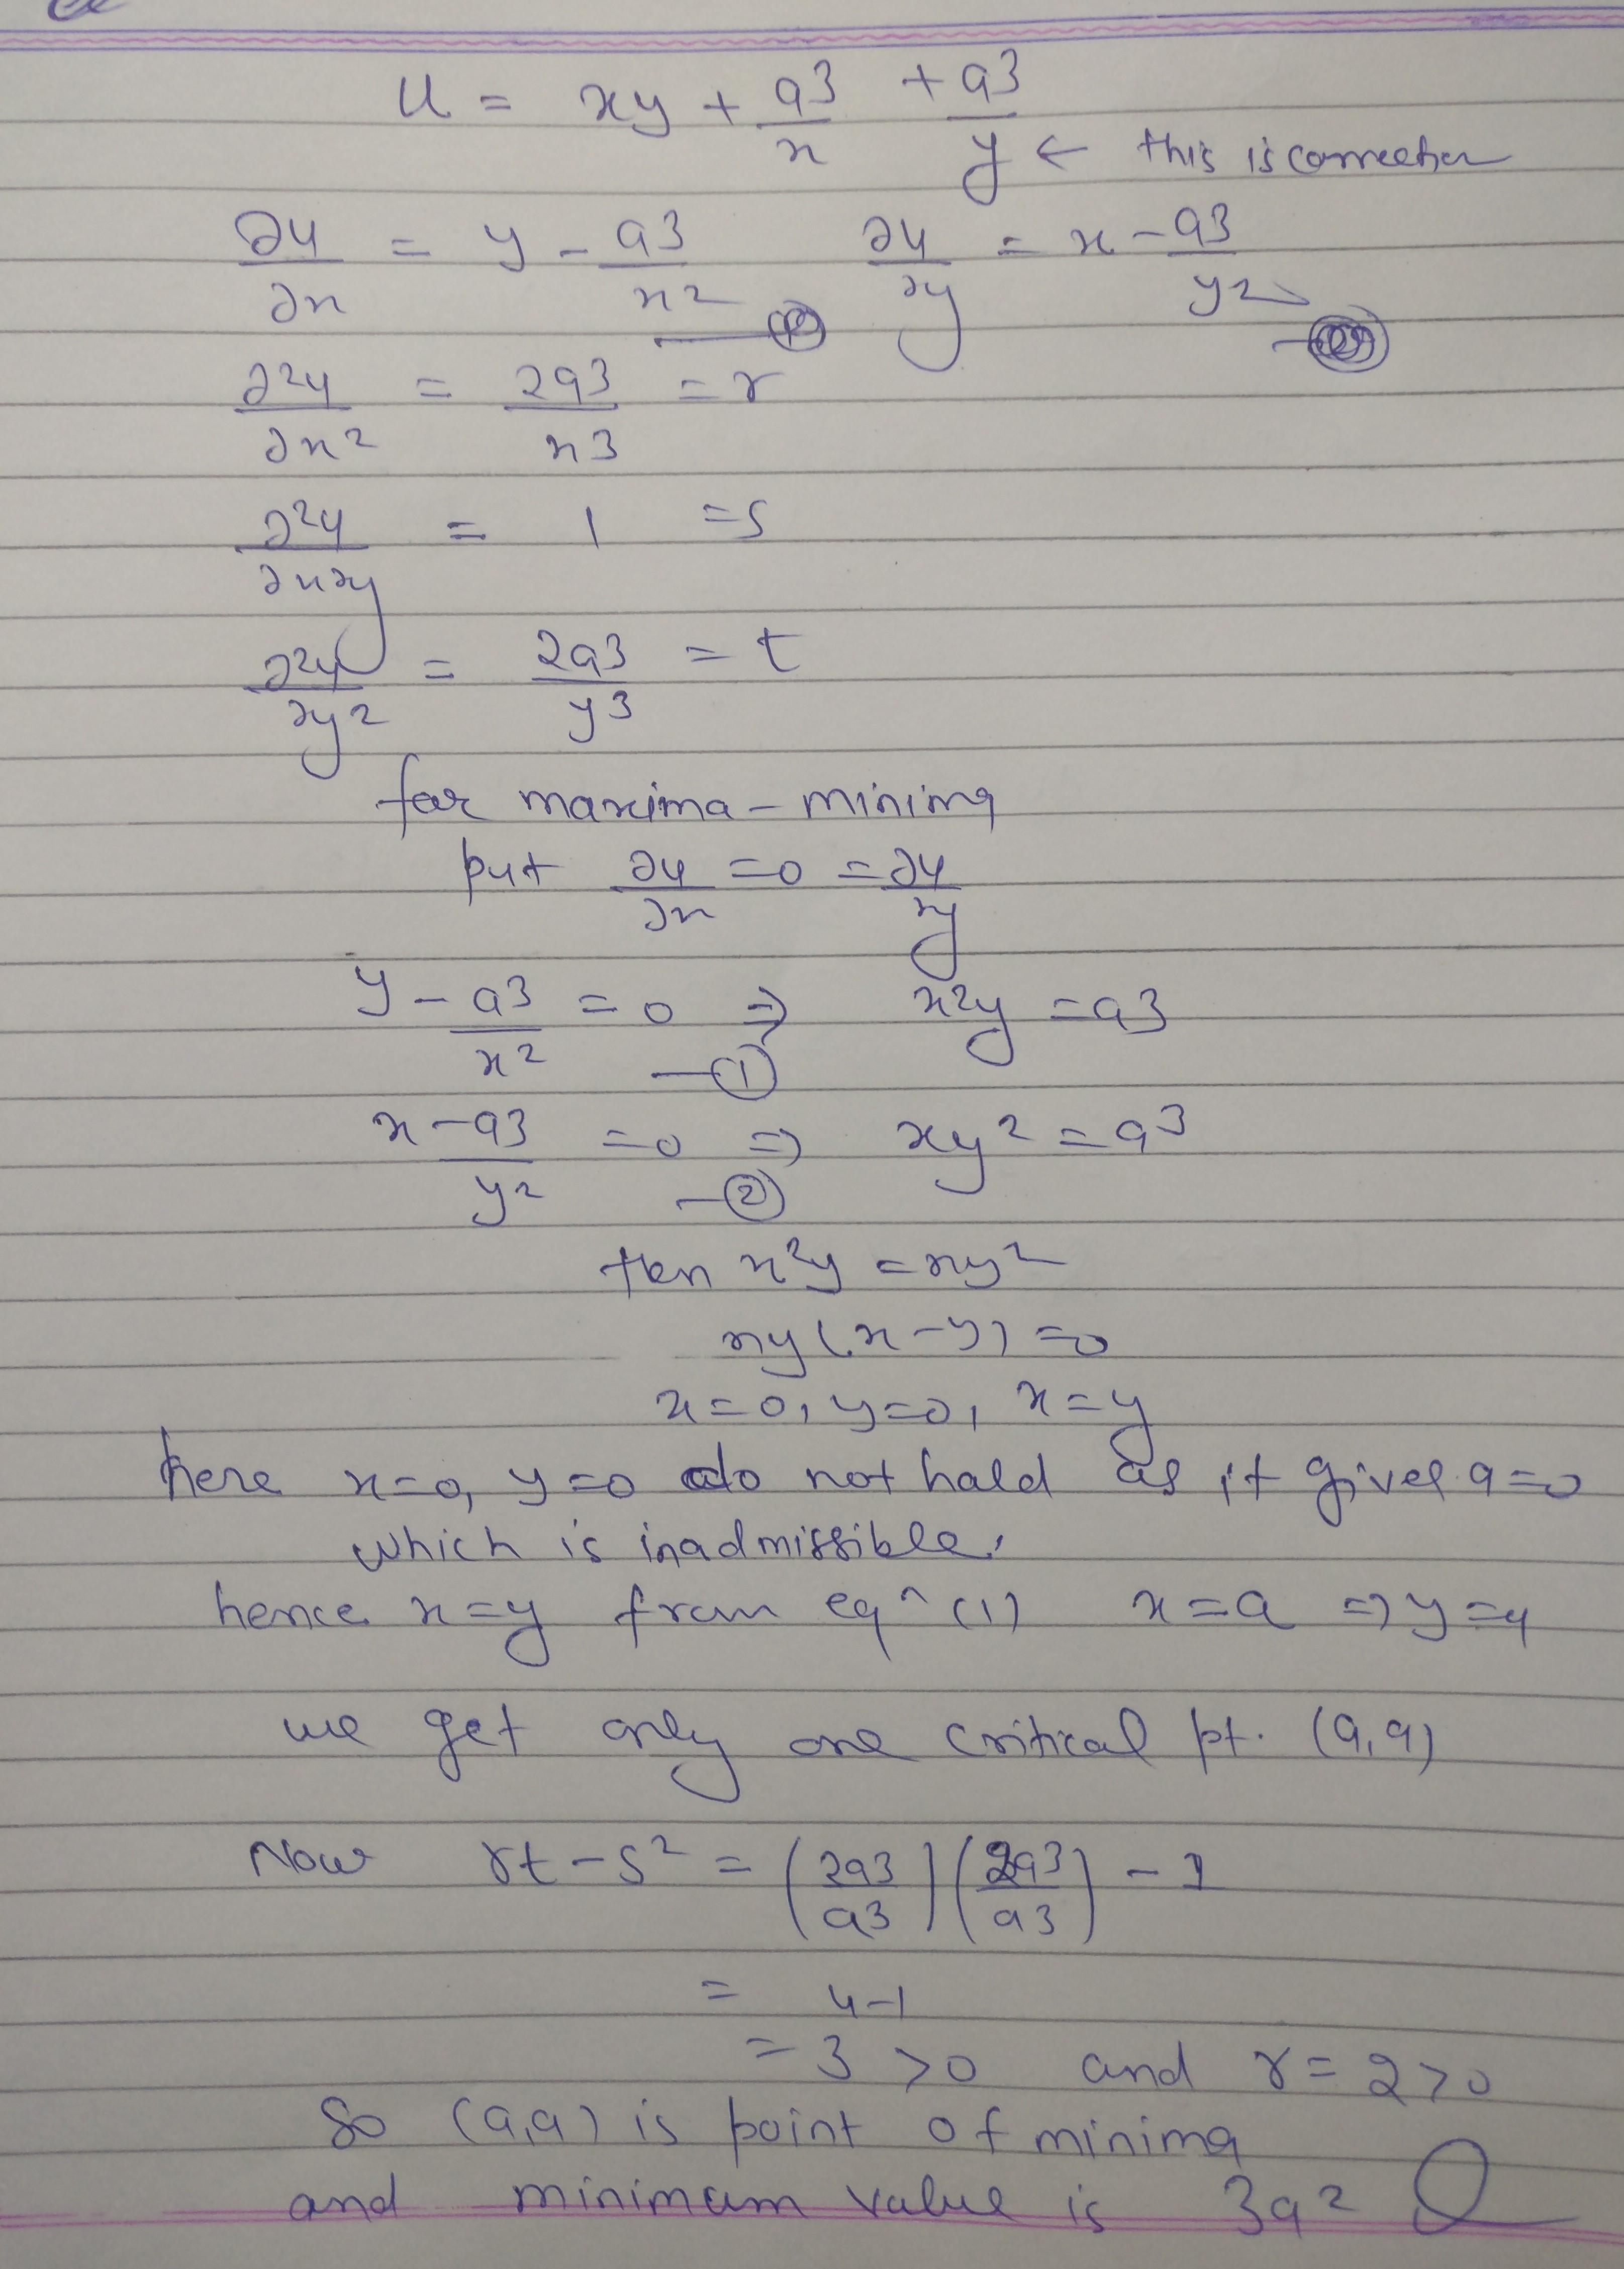 U = xy + a3/x + a3/y ← this is correction
∂u/∂x = y - a3/x2 ∂u/∂y = x - a3/y2
∂2u/∂x2 = 2a3/x3 = r
∂2u/∂x∂y = 1 = s
∂2u/∂y2 = 2a3/y3 = t
for maxima - minima
put ∂u/∂x = 0 = ∂u/∂y
y - a3/x2 = 0 ⇒ x2y = a3
—①
x - a3/y2 = 0 ⇒ xy2 = a3
—②
then x2y = xy2
xy(x-y) = 0
x=0, y=0, x=y
here x=0, y=0 do not hold as it gives a=0
which is inadmissible.
hence x=y from eqn (1) x=a ⇒ y=a
we get only one critical pt. (a,a)
Now rt - s2 = (2a3/a3) (2a3/a3) - 1
= 4-1
= 3 >0 and r = 2>0
So (a,a) is point of minima
and minimum value is 3a2